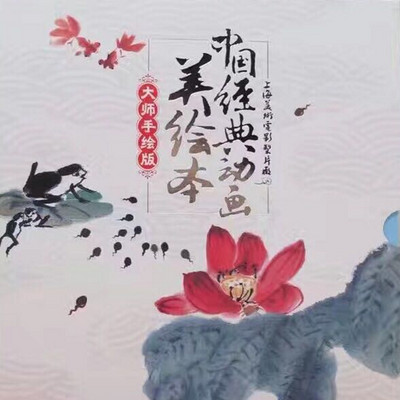 上海美术电影制片厂
中国经典动画
美绘本
大师手绘版